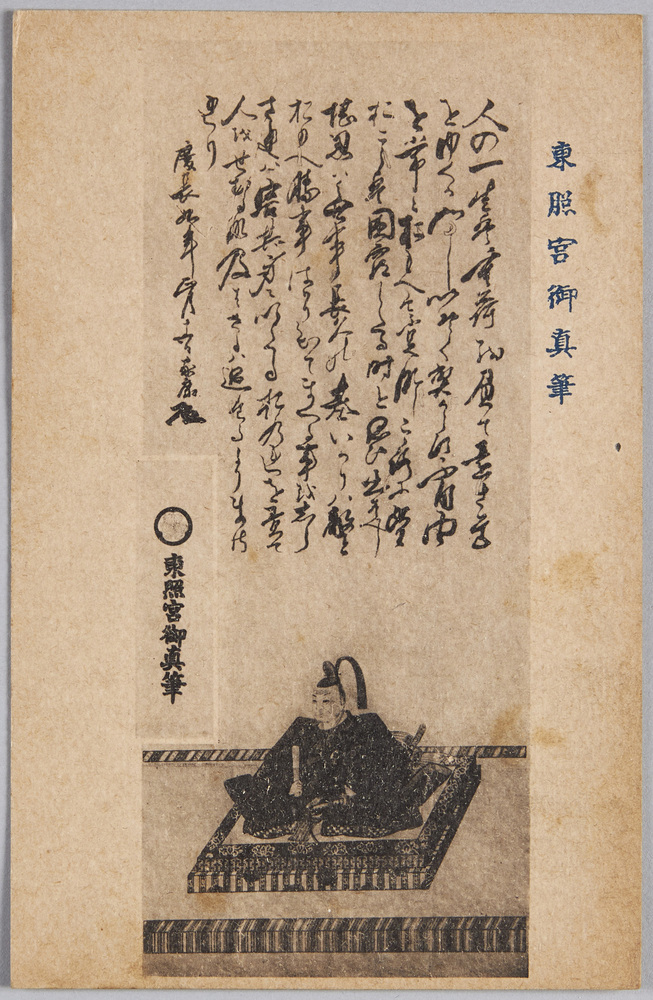 東照宮御真筆
人の一生は重荷を負て遠き道
をゆくか如しいそくへからす不自由
を常とおもへは不足なしこゝろに望
おこらは困窮したる時を思ひ出すへし
堪忍は無事長久の基いかりは敵と
おもへ勝事はかり知てまくる事をしら
されは害其身にいたるおのれを責て
人をせむるな及はさるは過たるよりまさ
れり
慶長九年正月十五日家康
東照宮御真筆